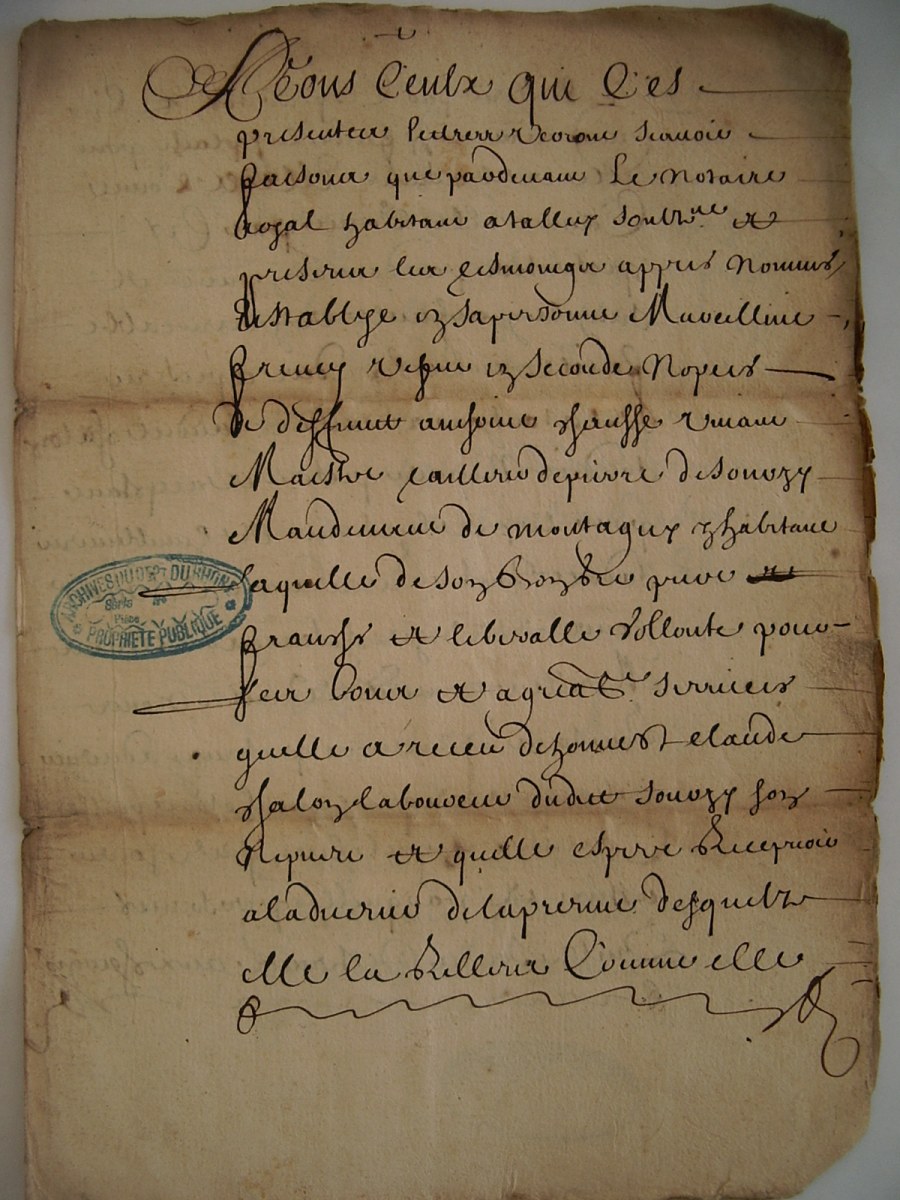 A tous Ceulx qui Ces
presentes lettres verront scavoir
faisons que pardevant Le Notaire
Royal habitant a talluy soubzne et
presens les tesmoings appres Nommes
Establye en sa personne
vefve en seconde Nopces
De deffunct anthoine vivant
Maistre tailleur de pierre de souvzy
Mandement de montagny y habitant
Laquelle de son bon gre pure
franche et liberalle vollonte pour
Les bons et agreables services
quelle a receu de honneste claude
laboureur dudict souvzy son
Nepveu et quelle espere Recepvoir
a ladvenir de la presme desquelz
elle la Relleve Comme elle
ARCHIVES DU DEP. DU RHONE
PROPRIETE PUBLIQUE